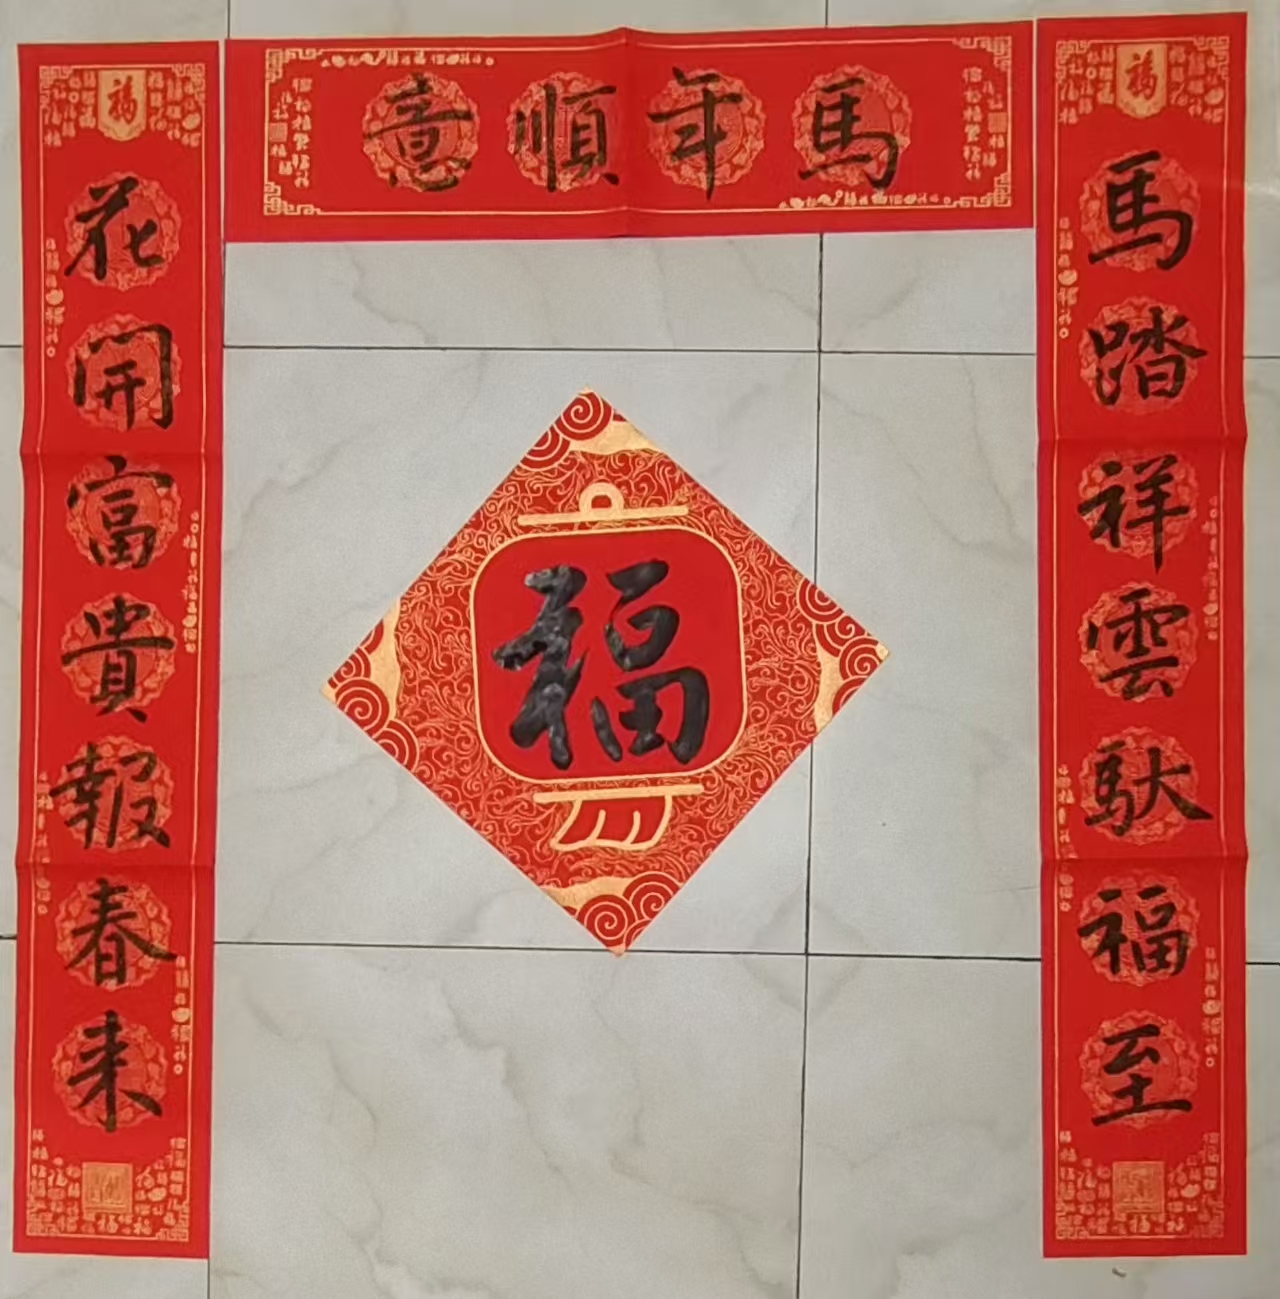 馬年順意
馬踏祥雲馱福至
花開富貴報春来
福
福
福